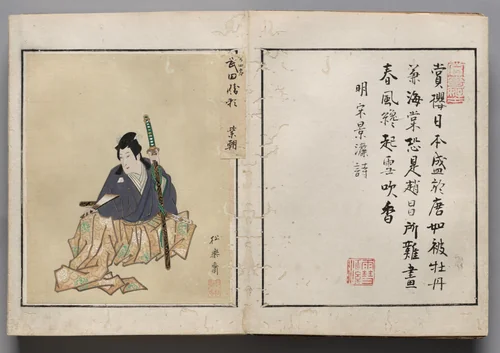 賞櫻日本盛於唐如被牡丹
兼海棠恐是趙昌所難畫
春風纔起雪吹香
明宋景濂詩
武田勝